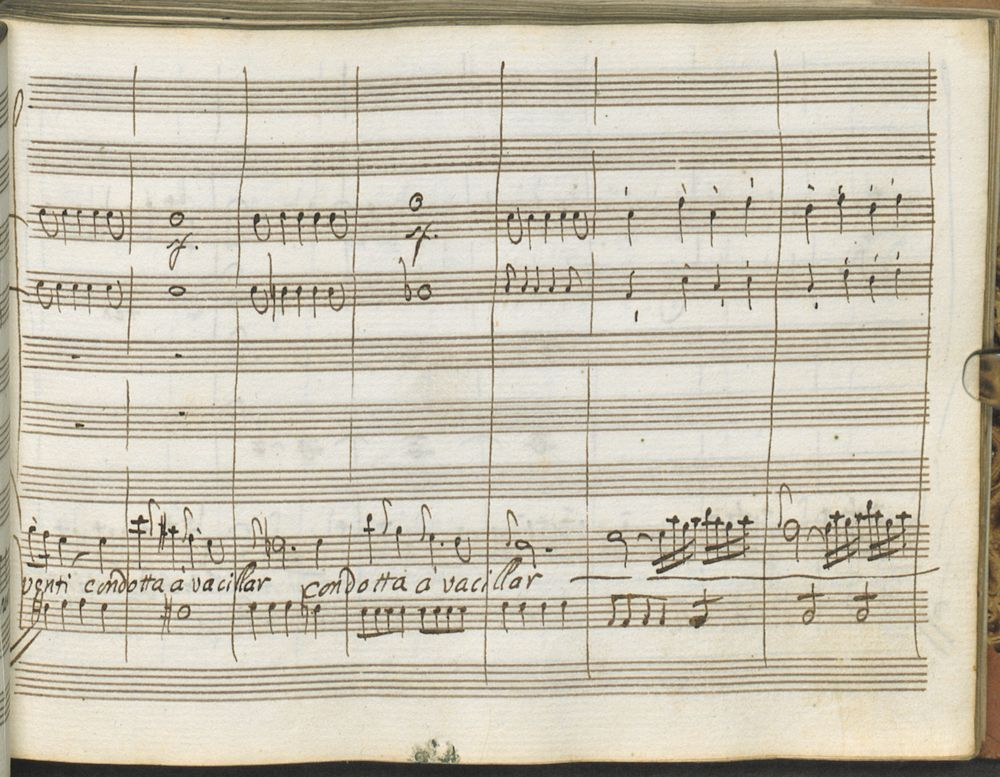 sf. sf.
venti condotta à vacillar condotta à vacillar